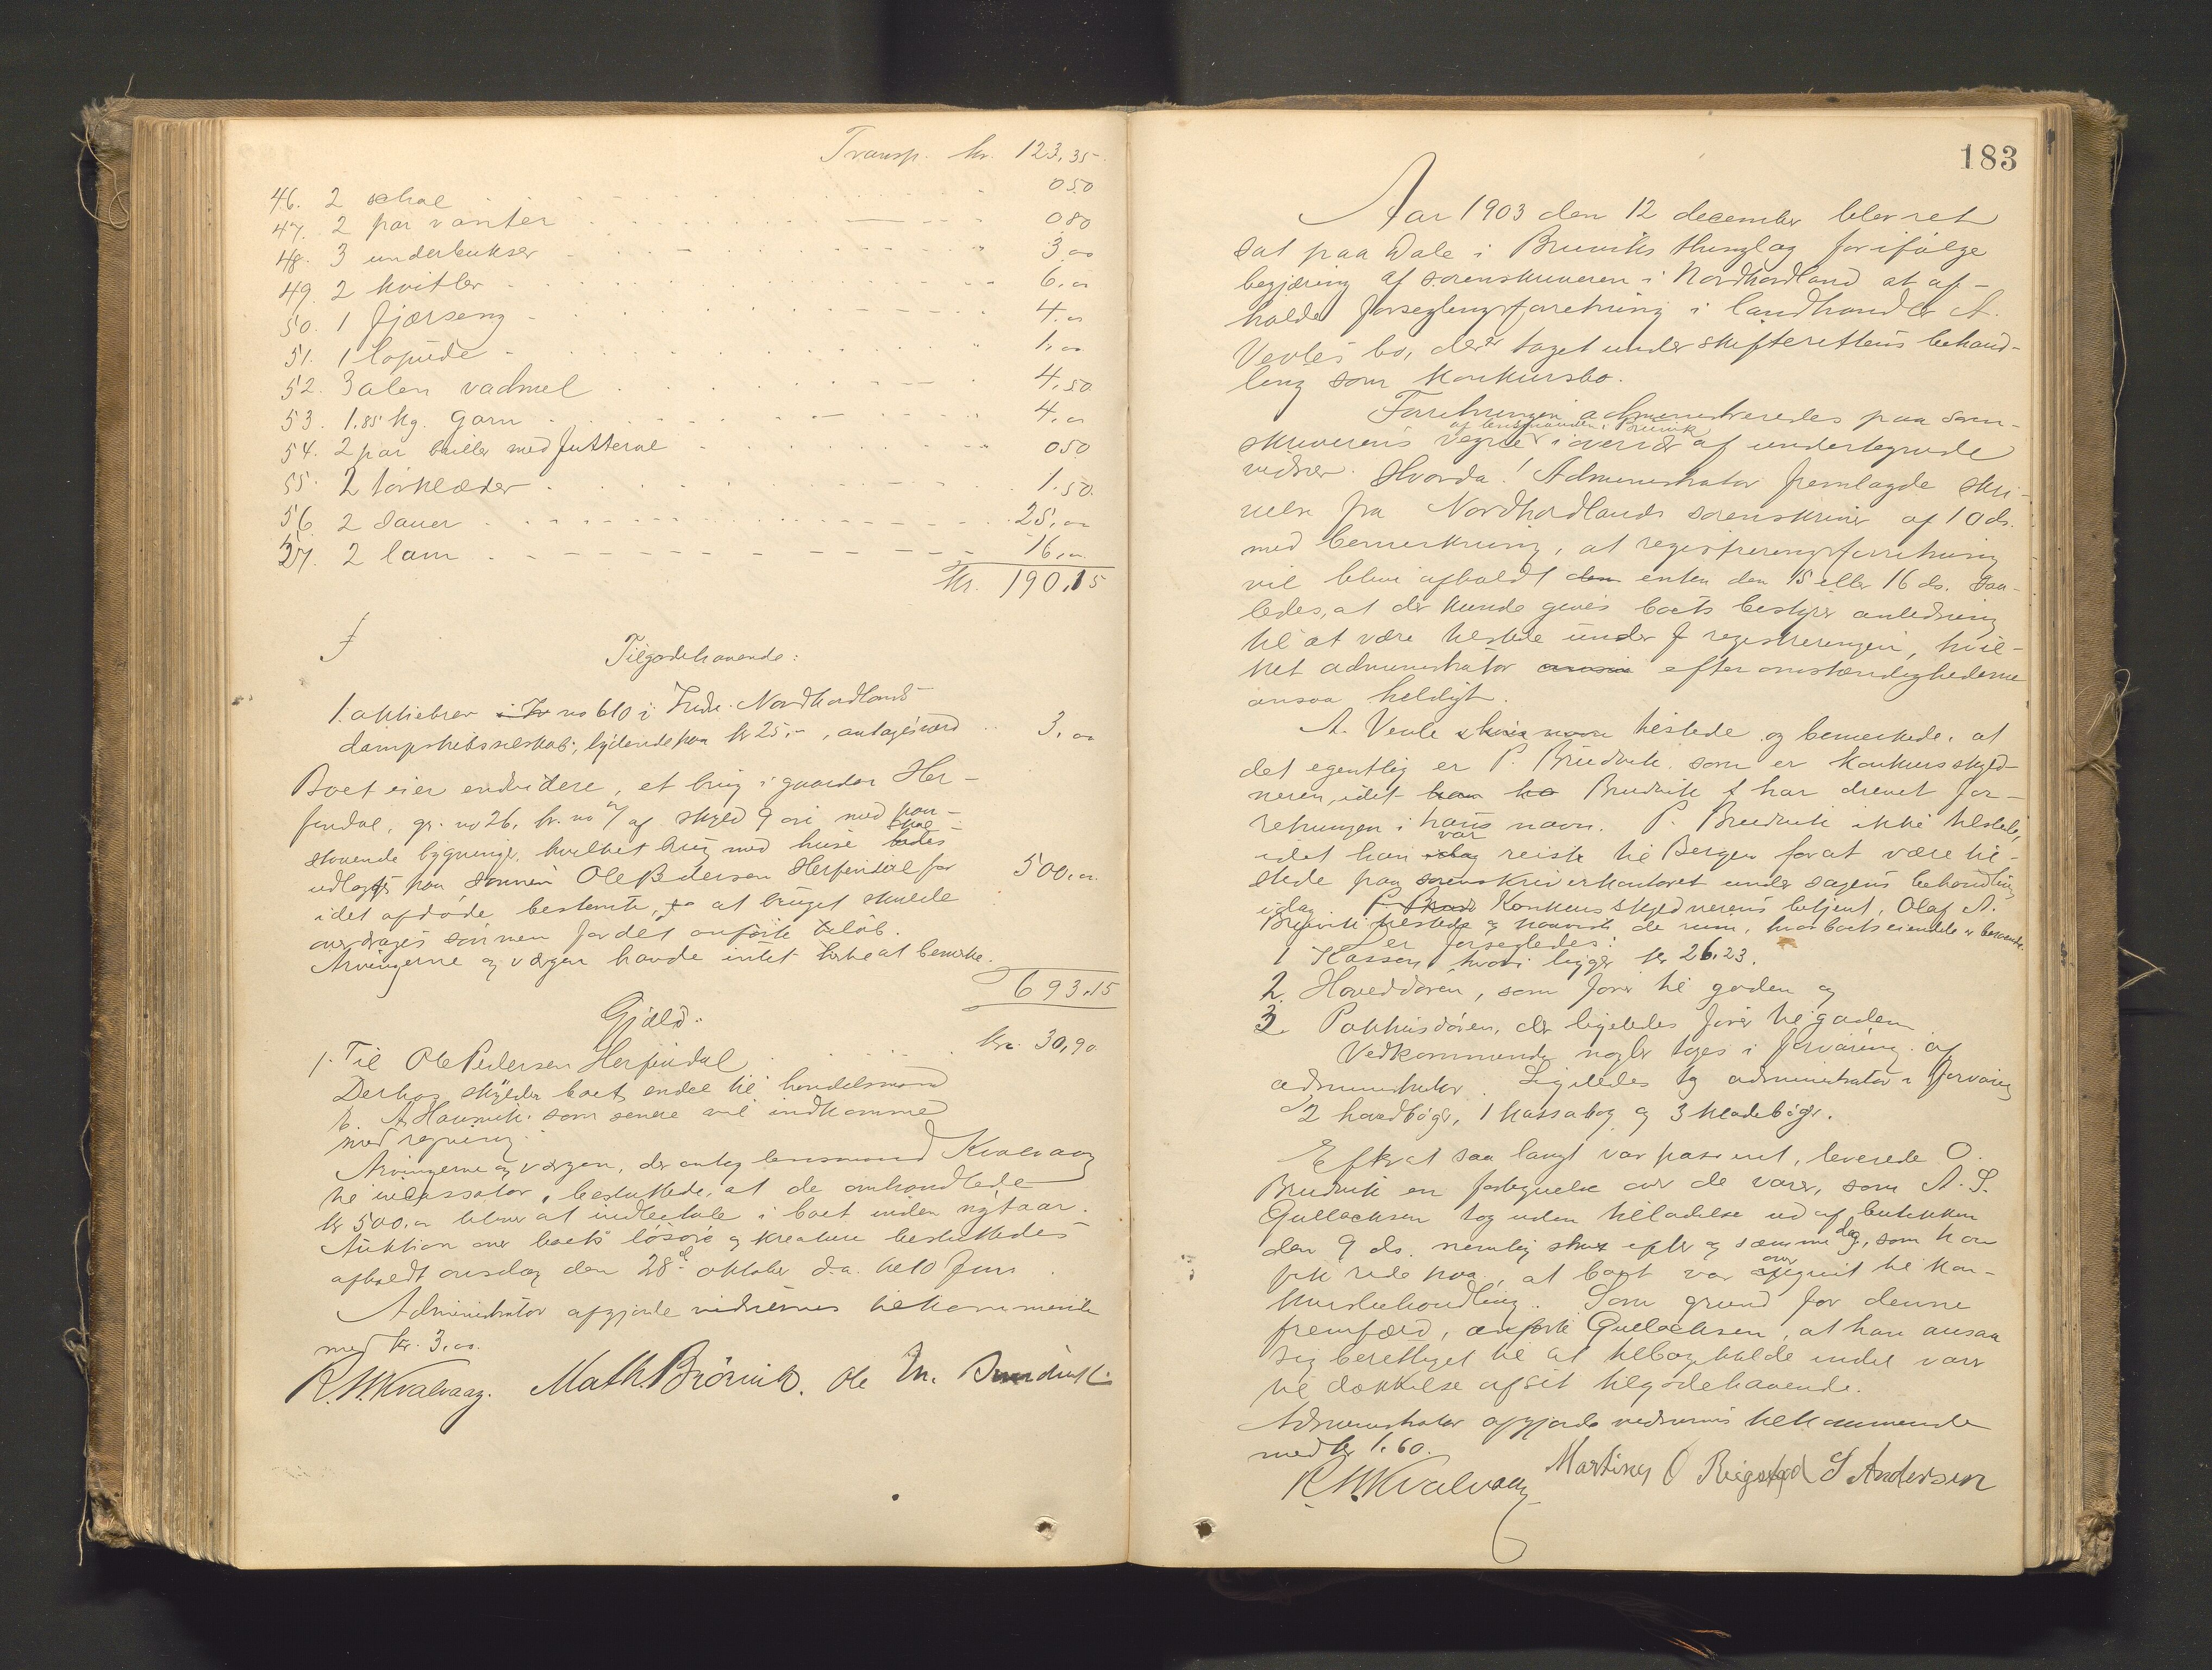 Transp. kr. 123,35
46. 2 schal 050
47. 2 par vanter 080
48. 3 underbukser 3,00
49. 2 kvitler 6,00
50. 1 fjærseng 4,00
51. 1 lopude 1,00
52. 3 alen vadmel 4,50
53. 1,85 kg. garn 4,00
54. 2 par briller med futteral 050
55. 2 tørklæder 1,50
56. 2 sauer 25,00
57. 2 lam 16,00
Kr. 190,15
f
Tilgodehavende:
1. aktiebrev no 610 i Indre Nordhordlands
dampskibsselskab, lydende paa kr 25,-, antages værd 3,00
Boet eier endvidere, et brug i gaarden Her-
findal, gr. no 26, br. no 7 af skyld 9 øre med paa-
staaende bygninger, hvilket brug med huse skal
udlægges paa sønnen Ole Pedersen Herfindal for 500,00
idet afdøde bestemte, at bruget skulde
overdrages sønnen for det anførte beløb.
Arvingerne og værgen havde intet at bemerke.
693,15
Gjæld:
1. Til Ole Pedersen Herfindal kr. 30,90
Derhos skylder boet endel til handelsmand
A. som senere vil indkomme
med regning.
Arvingerne og værgen, der antog lensmand Kvalvaag
til incassator, besluttede, at de omhandlede
kr 500,00 bliver at indbetale i boet inden nytaar.
Auktion over boets løsøre og kreature besluttedes
afholdt onsdag den 28de oktober d.a. kl 10 form.
Administrator afgjorde vidnernes tilkommende
med kr. 3,00.
R. M. Kvalvaag. Math. Brørvik. Ole M. Bruvik
183
Aar 1903 den 12 december blev ret
sat paa Dale i Bruviks thinglag for ifølge
begjæring af sorenskriveren i Nordhordland at af-
holde forseglingsforretning i landhandler A.
Vevles bo, der er taget under skifterettens behand-
ling som konkursbo.
Forretningen administreredes paa soren-
af lensmanden i Bruvik
skriverens vegne i overvær af undertegnede
vidner. Hvorda! Administrator fremlagde skri-
velse fra Nordhordlands sorenskriver af 10 ds.
med bemerkning, at registreringsforretning
vil blive afholdt den enten den 15 eller 16 ds. saa-
ledes, at der kunde gives boets bestyrer anledning
til at være tilstede under registreringen, hvil-
ket administrator efter omstændighederne
ansaa heldigt.
A. Vevle tilstede og bemerkede, at
det egentlig er P. Brudvik som er konkursskyld-
neren, idet Brudvik har drevet for-
retningen i hans navn. P. Brudvik ikke tilstede,
idet han var reist til Bergen for at være til-
stede paa sorenskriverkontoret under sagens behandling
idag. Konkursskyldnerens betjent, Olaf A.
Brudvik tilstede og paaviste de rum, hvor boets eiendele er beroende.
Der forsegledes:
1 Kassen, hvori ligger kr 26,23.
2. Hoveddøren, som fører til gaden og
3. Pakhusdøren, der ligeledes fører til gaden.
Vedkommende nøgler toges i forvaring af
administrator. Ligeledes tog administrator i forvaring
2 hovedbøger, 1 kassabog og 3 kladebøger.
Efterat saa langt var passeret, leverede O.
Brudvik en fortegnelse over de varer, som A. S.
Gullachsen tog uden tilladelse ud af butikken
den 9 ds. nemlig strax efter og samme dag, som han
fik rede paa, at boet var overgivet til kon-
kursbehandling. Som grund for denne
fremfærd, anførte Gullachsen, at han ansaa
sig berettiget til at tilbageholde endel varer
til dækkelse af sit tilgodehavende.
Administrator afgjorde vidnernes tilkommende
med kr 1.60.
R. M. Kvalvaag Martinus O Reigstad S Andersen